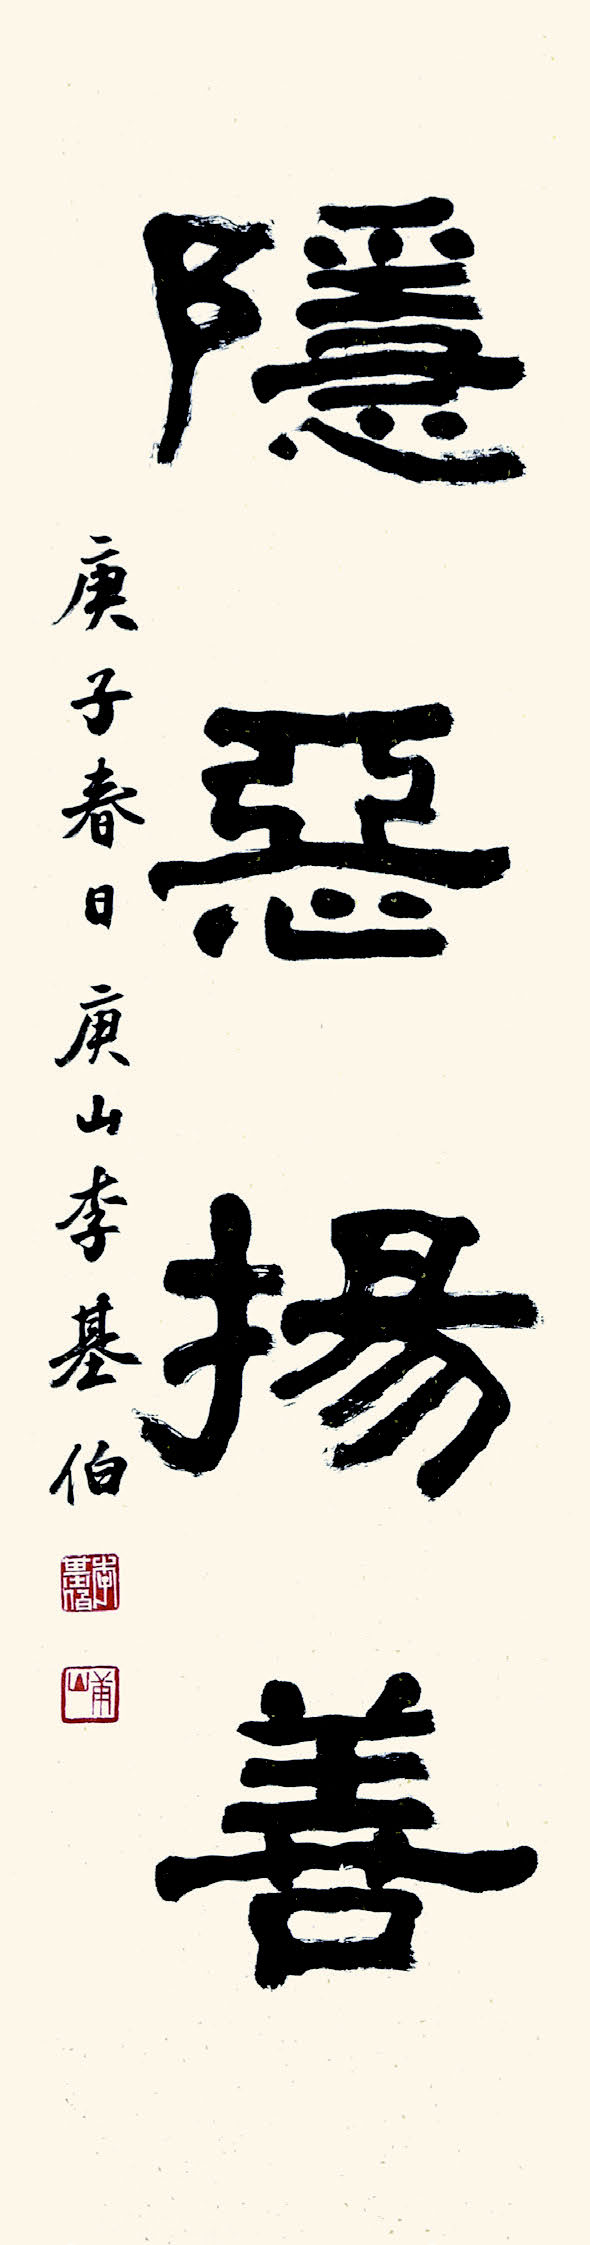 隱惡揚善
庚子春日庚山李基伯